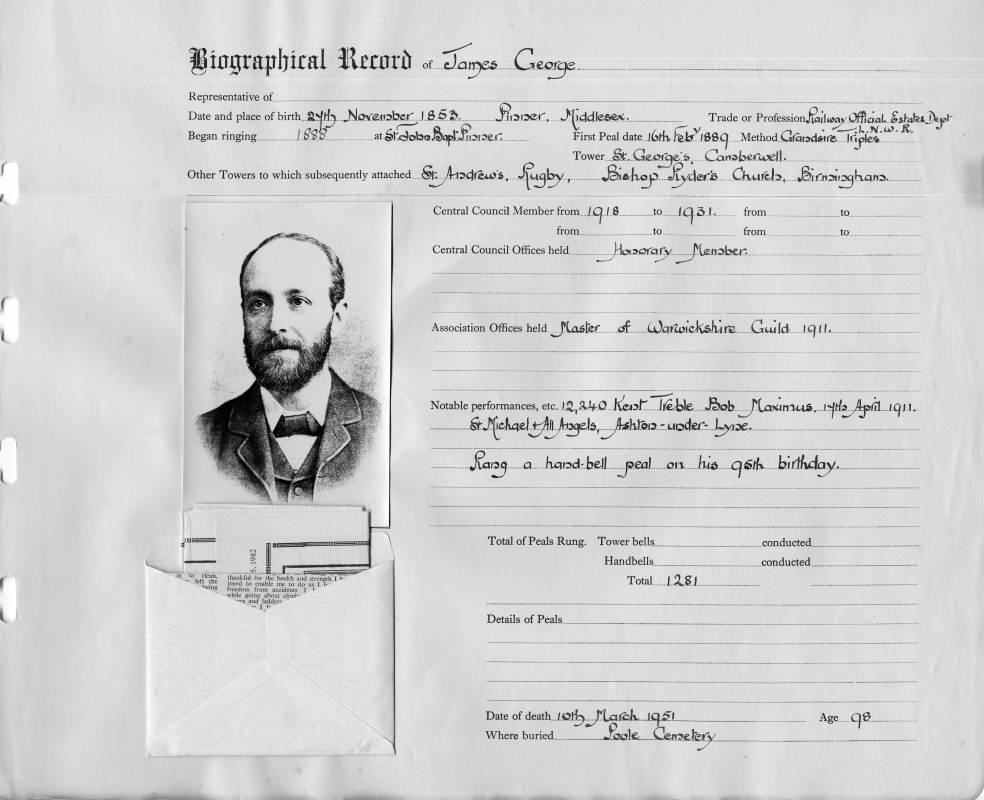 Biographical Record of James George.
Representative of
Date and place of birth 24th November 1853. Pinner, Middlesex. Trade or Profession Railway Official Estates Dept
L.N.W.R.
Began ringing 1888 at St. John Bapt. Pinner. First Peal date 16th Feby 1889 Method Grandsire Triples
Tower St. George's, Camberwell.
Other Towers to which subsequently attached St. Andrew's, Rugby, Bishop Ryder's Church, Birmingham.
Central Council Member from 1918 to 1931. from to
from to from to
Central Council Offices held Honorary Member.
Association Offices held Master of Warwickshire Guild 1911.
Notable performances, etc. 12,240 Kent Treble Bob Maximus, 17th April 1911.
St Michael & All Angels, Ashton-under-Lyne.
Rang a hand-bell peal on his 95th birthday.
Total of Peals Rung. Tower bells conducted
Handbells conducted
Total 1281
Details of Peals
Date of death 10th March 1951 Age 98
Where buried Poole Cemetery
5, 1982
to clean, thankful for the health and strength I
left the joyed to enable me to do as I
being freedom from accidents I
while going about
and ladders